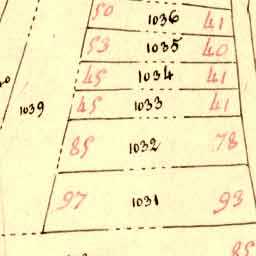 50 1036 41
53 1035 40
45 1034 41
1039 45 1033 41
85 1032 78
97 1031 93
85